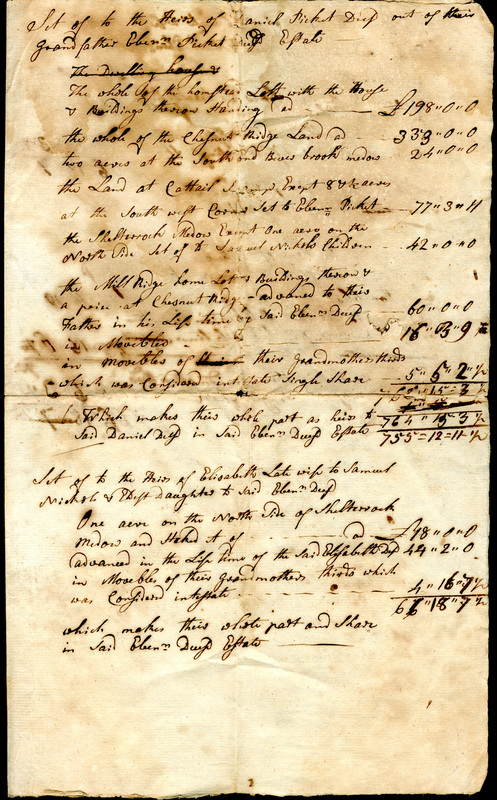 Set of to the Heirs of Daniel Picket Decsd out of their
Grandfather Ebenr Picket Decsd Estate
The Dwelling house &
The whole of the homstead Lott with the House
& Buildings theron Standing ad £198"0"0
the whole of the Chesnut Ridge Land ad 339"0"0
two acres at the South end Bves brook medow 24"0"0
the Land at Cattail Swamp Exept 8 & ½ acres
at the South west Corner Set to Ebenr Picket 77"3"11
the Shelterrock Medow Except One acre on the
North Side Set of to Samuel Nichols Children 42"0"0
the Mill Ridge home Lot & Buildings theron &
a peice at Chesnut Ridge advanced to their
Father in his Life time by Said Ebenr Decsd 60"0"0
in Movebles 18"3"9
in Movebles of their Grandmothers thirds
which was Considerd intestate Single Share 5"6"2½
Which makes their whole part as heirs to 764"15"3½
Said Daniel Decsd in Said Ebenr Decsd Estate 755=12=11½
Set of to the Heirs of Elisabeth Late wife to Samuel
Nichols & Eldest Daughter to Said Ebenr Decsd
One acre on the North Side of Shelterrock
Medow and Staked it of ad £18"0"0
advanced in the Life time of the Said Elisabeth Decsd 44"2"0
in Movebles of their Grandmothers thirds which
was Considerd intestate 4"16"7½
66"18"7½
which makes their whole part and Share
in Said Ebenr Decsd Estate